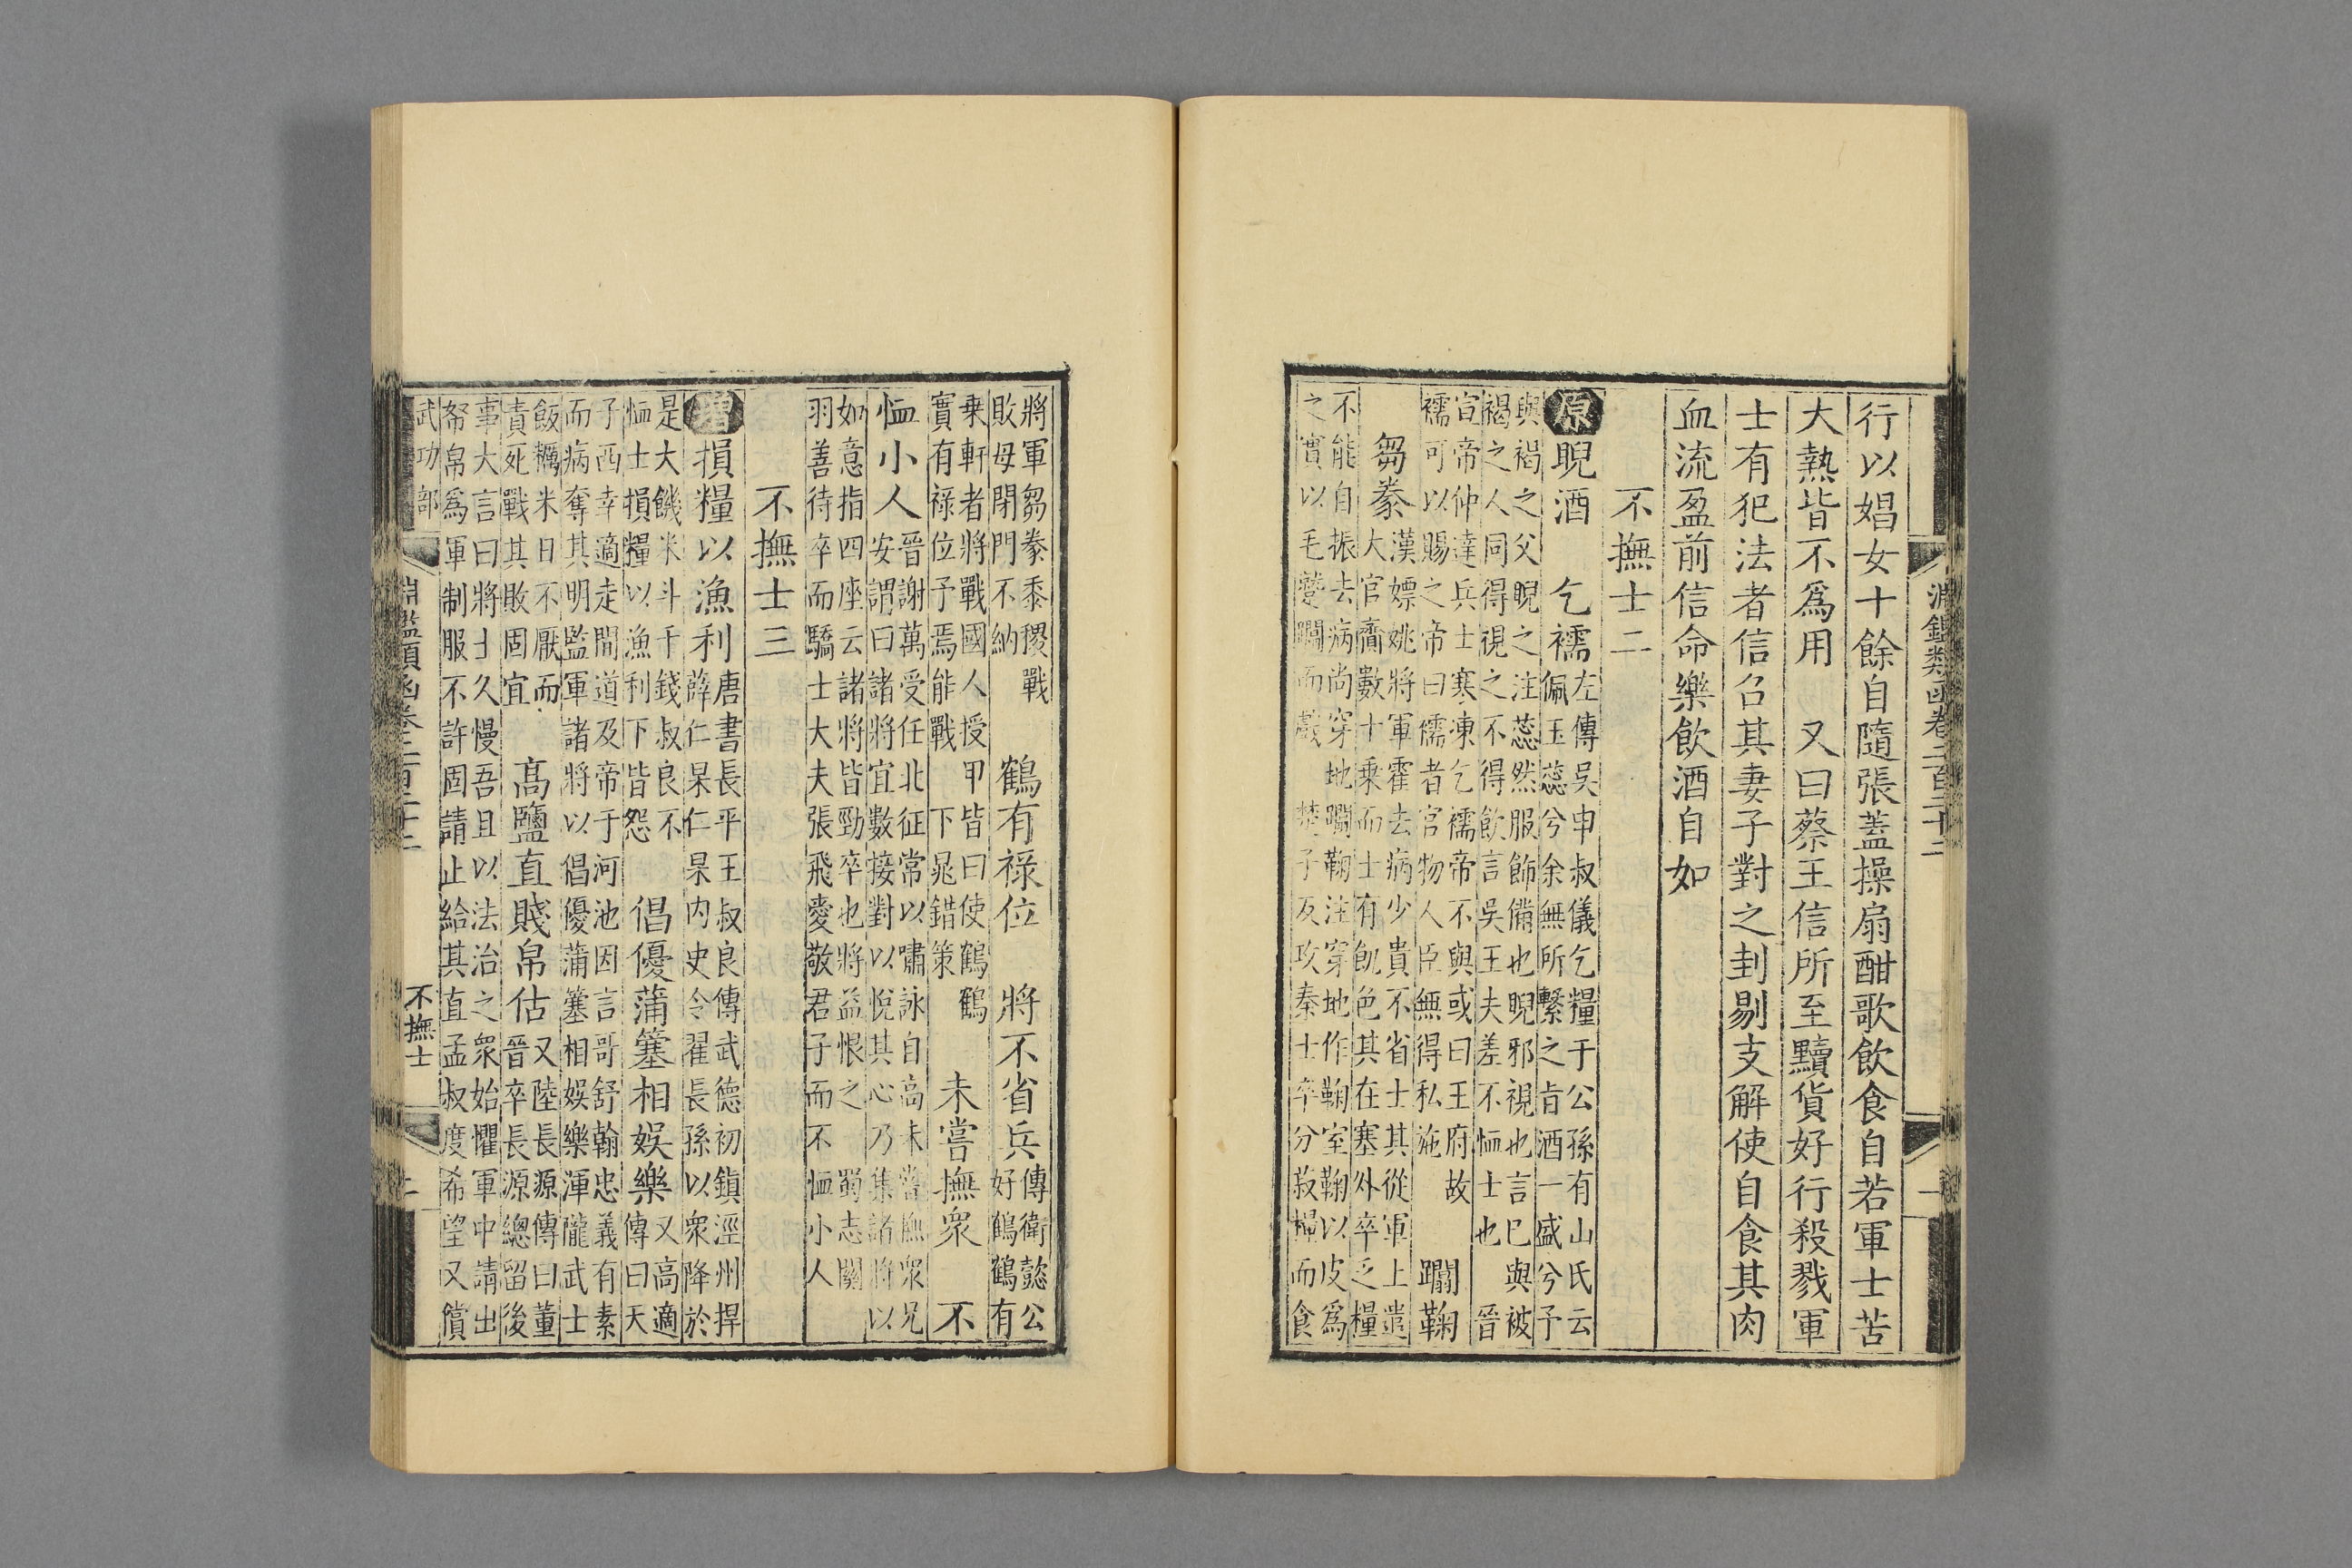 淵鑑類函卷二百二十二
一
行以娼女十餘自隨張蓋操扇酣歌飲食自若軍士苦
大熱皆不爲用 又曰蔡王信所至黷貨好行殺戮軍
士有犯法者信召其妻子對之刲剔支解使自食其肉
血流盈前信命樂飲酒自如
不撫士二
原睨酒 乞襦
左傳吳申叔儀乞糧于公孫有山氏云
佩玉蕊兮余無所繫之旨酒一盛兮予
與褐之父睨之注蕊然服飾備也睨邪視也言已與被
褐之人同得視之不得飲言吳王夫差不恤士也 晉
宣帝仲達兵士寒凍乞襦帝不與或曰王府故
襦可以賜之帝曰襦者官物人臣無得私施
躢鞠
芻豢
漢嫖姚將軍霍去病少貴不省士其從軍上遣
大官齎數十乘而士有飢色其在塞外卒乏糧
不能自振去病尚穿地躢鞠注穿地作鞠室鞠以皮爲
之實以毛蹵躢而戲 楚子反攻秦士卒分菽糧而食
將軍芻豢黍稷戰
敗母閉門不納
鶴有祿位 將不省兵
傳衛懿公
好鶴鶴有
乗軒者將戰國人授甲皆曰使鶴鶴
實有祿位予焉能戰 下晁錯策
未嘗撫衆 不
恤小人
晉謝萬受任北征常以嘯詠自高未嘗撫衆兄
安謂曰諸將宜數接對以悅其心乃集諸將以
如意指四座云諸將皆勁卒也將益恨之 蜀志關
羽善待卒而驕士大夫張飛愛敬君子而不恤小人
不撫士三
增損糧以漁利
唐書長平王叔良傳武德初鎮涇州捍
薛仁杲仁杲内史令翟長孫以衆降於
是大饑米斗千錢叔良不
恤士損糧以漁利下皆怨
倡優蒲簺相娛樂
又高適
傳曰天
子西幸適走間道及帝于河池因言哥舒翰忠義有素
而病奪其明監軍諸將以倡優蒲簺相娛樂渾隴武士
飯糲米日不厭而
責死戰其敗固宜
高鹽直賤帛估
又陸長源傳曰董
晉卒長源總留後
事大言曰將士久慢吾且以法治之衆始懼軍中請出
帑帛爲軍制服不許固請止給其直孟叔度希望又償
武功部
淵鑑類函卷二百二十二
不撫士
二